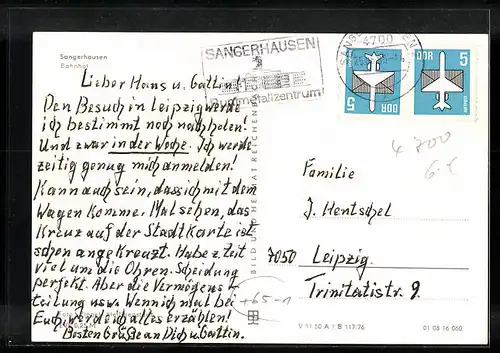 Sangerhausen
Bahnhof
SANGERHAUSEN
4700
5 DDR
DDR 5
Lieber Hans u. Gattin!
Den Besuch in Leipzig werde
ich bestimmt noch nachholen!
Und zwar in der Woche. Ich werde
zeitig genug mich anmelden!
Kann auch sein, dass ich mit dem
Wagen komme. Mal sehen, das
Kreuz auf der Stadtkarte ist
schon angekreuzt. Habe z. Zeit
viel um die Ohren. Scheidung
perfekt. Aber die Vermögens
teilung usw. Wenn ich mal bei
Euch, werde ich alles erzählen!
Besten Grüße an Dich u. Gattin.
BILD UND HEIMAT REICHENBACH
4700
6.€
Familie
J. Hentschel
7050 Leipzig
Trinitatistr. 9
+65-1
V 11 50 A 1 B 117/76
01 08 16 060